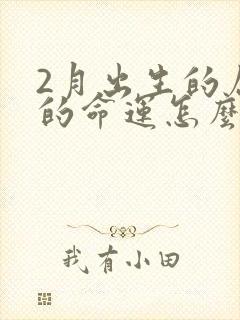 2月出生的
的命運怎麼
我有小田